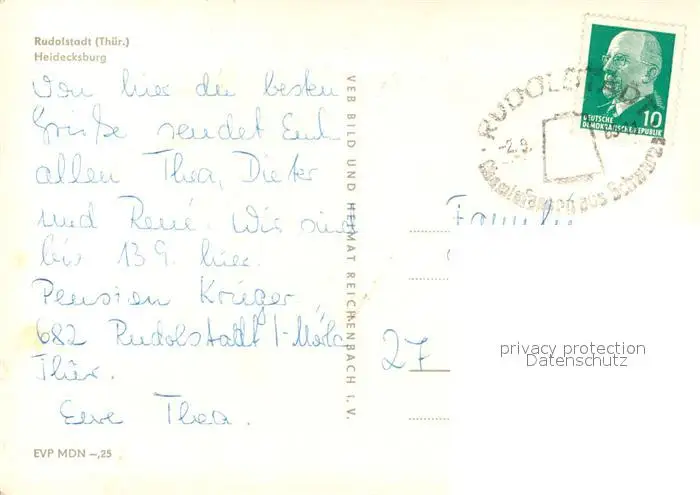 Rudolstadt (Thür.)
Heidecksburg
Von hier die besten
Grüße sendet Euch
allen Thea, Dieter
und René. Wir sind
bis 13.9. hier.
Pension Krüger,
682 Rudolstadt 1-Mörla
Thür.
Eure Thea.
EVP MDN –,25
VEB BILD UND HEIMAT REICHENBACH I. V.
RUDOLSTADT
-2.9.
aus Schwarza
10
DEUTSCHE
DEMOKRATISCHE REPUBLIK
Familie
27
privacy protection
Datenschutz